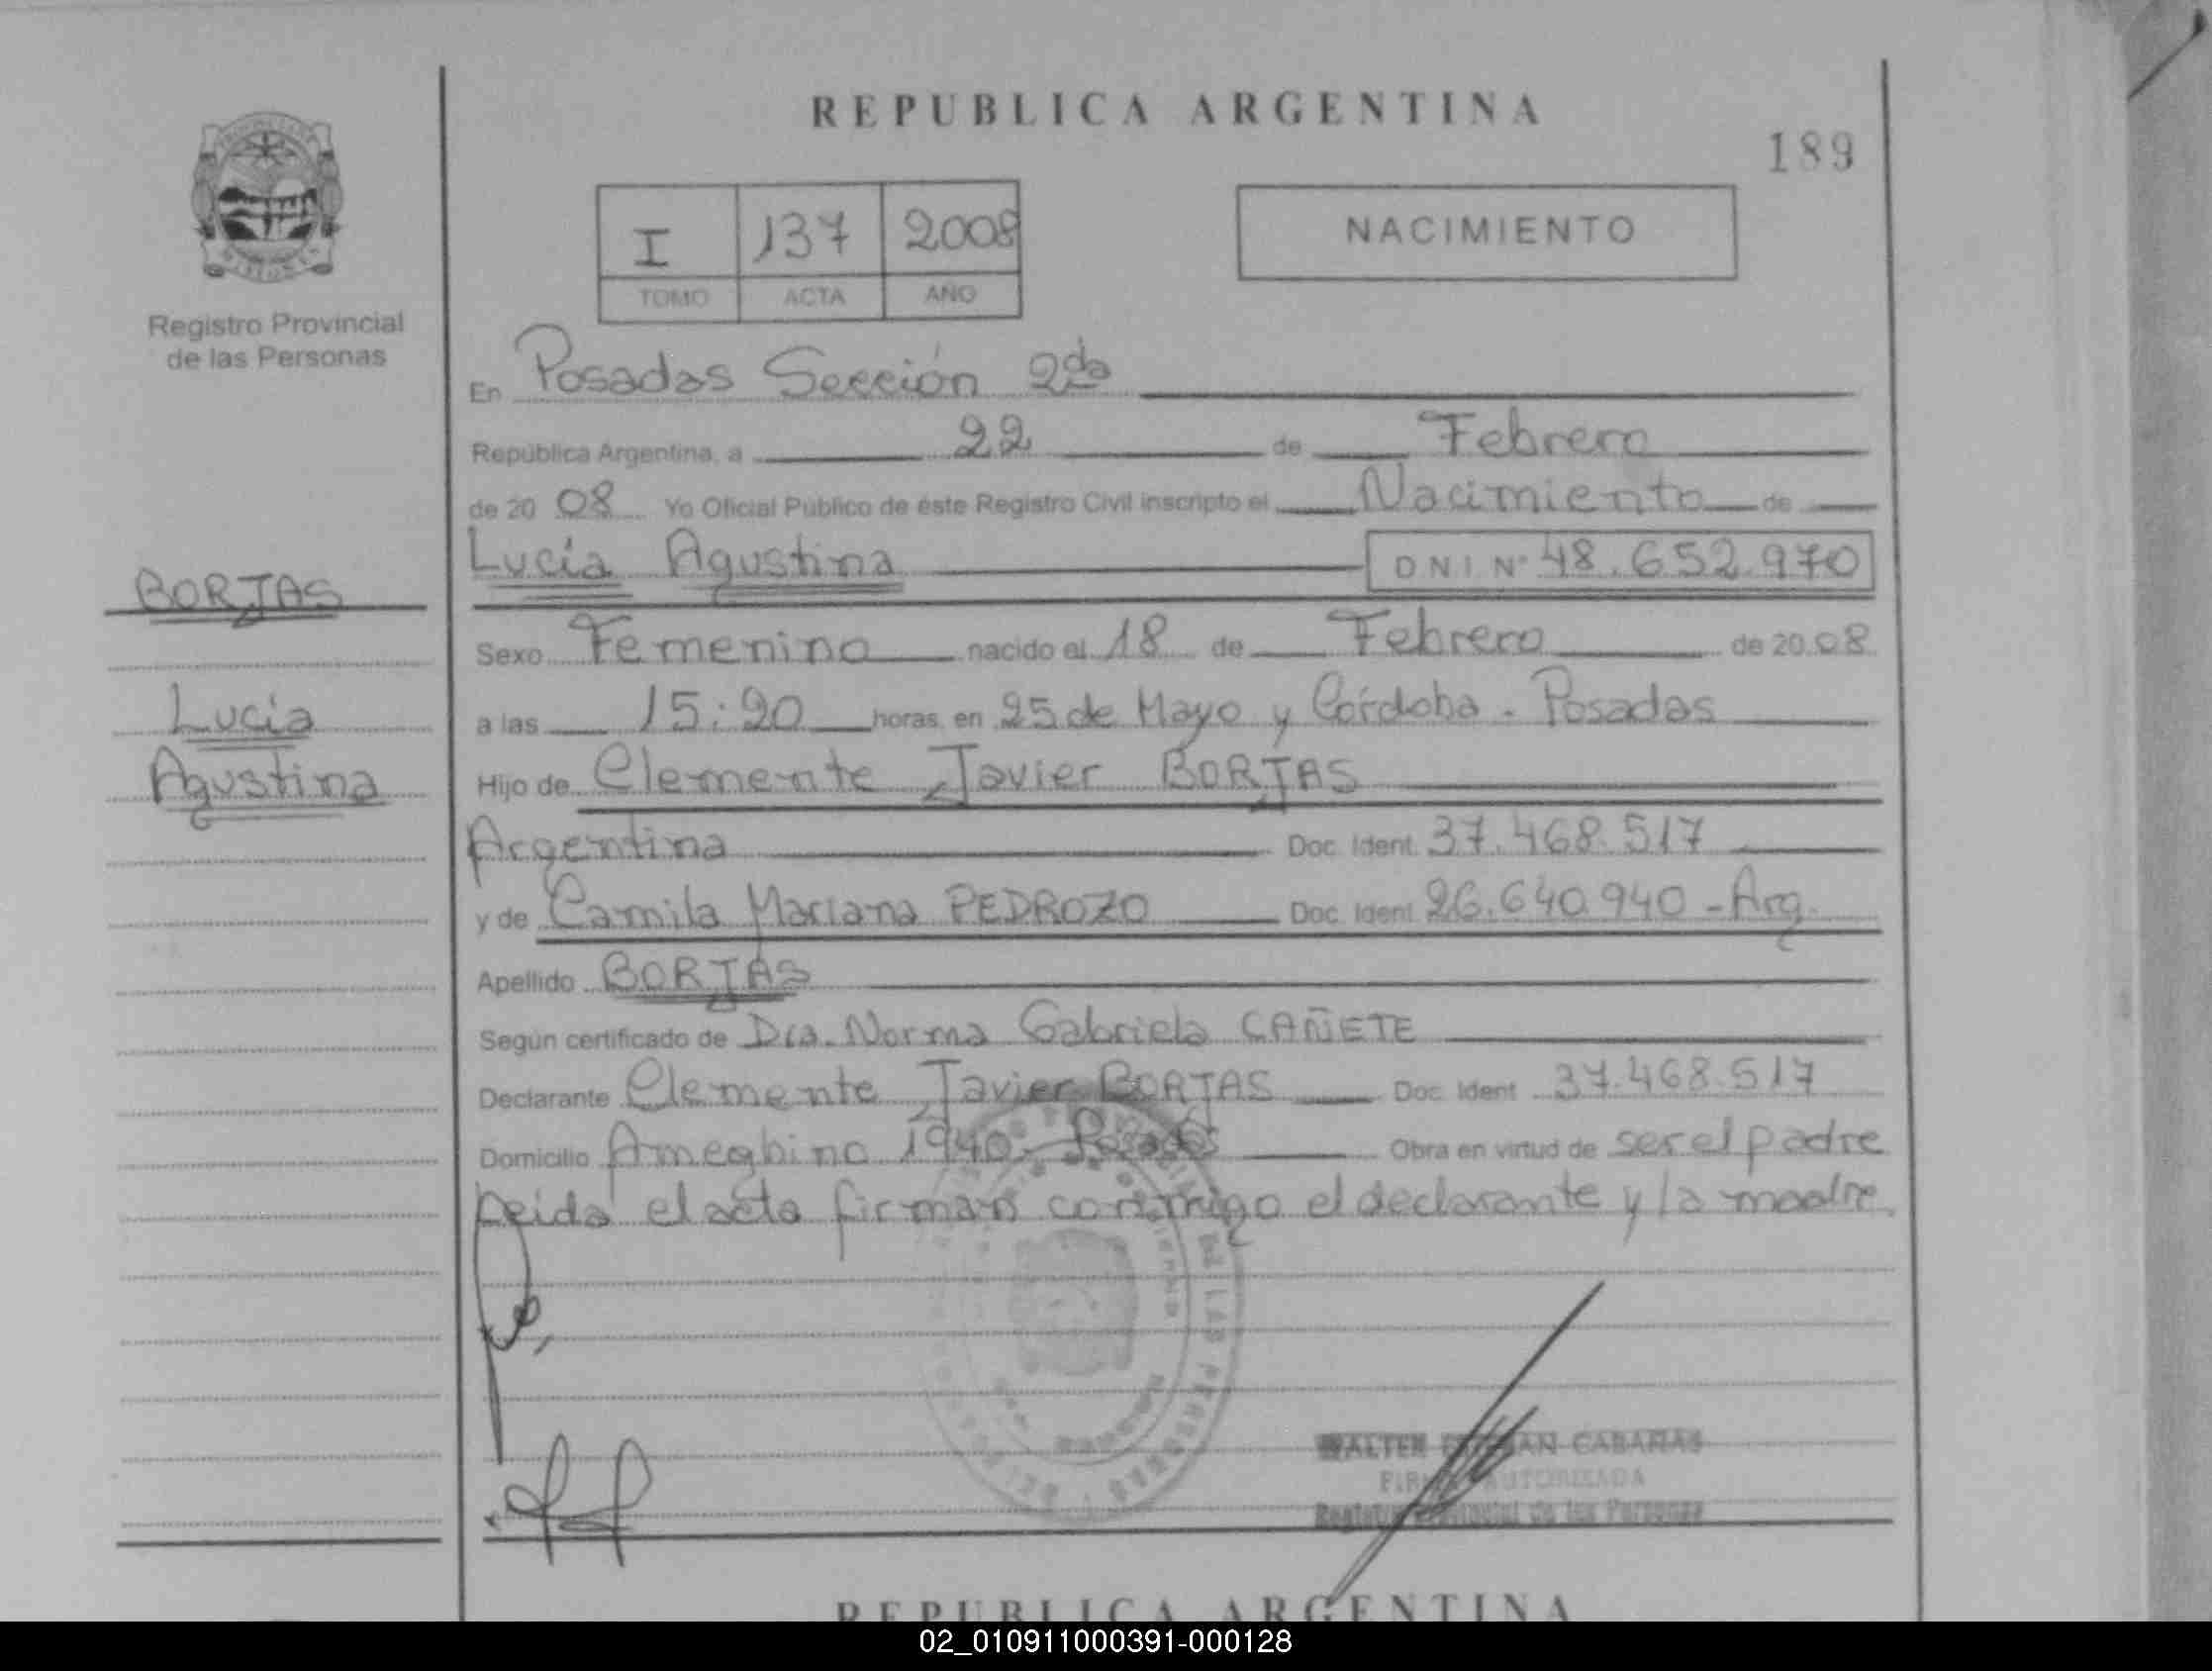 REPUBLICA ARGENTINA
189
I 137 2008
TOMO ACTA AÑO
NACIMIENTO
Registro Provincial
de las Personas
En Posadas Sección 2da
República Argentina, a 22 de Febrero
de 20 08 Yo Oficial Público de éste Registro Civil inscripto el Nacimiento de
Lucía Agustina DNI Nº 48.652.970
BORJAS
Sexo Femenino nacido el 18 de Febrero de 20 08
Lucía
a las 15:20 horas en 25 de Mayo y Córdoba - Posadas
Agustina
Hijo de Clemente Javier BORJAS
Argentina Doc. Ident. 37.468.517
y de Camila Mariana PEDROZO Doc. Ident. 26.640.940 - Arg.
Apellido BORJAS
Según certificado de Dra. Norma Gabriela CAÑETE
Declarante Clemente Javier BORJAS Doc. Ident. 37.468.517
Domicilio Ameghino 1940 - Posadas Obra en virtud de ser el padre
Leida el acta firman conmigo el declarante y la madre.
WALTER CABAÑAS
FIRMA AUTORIZADA
Registro Provincial de las Personas
REPUBLICA ARGENTINA
02_010911000391-000128